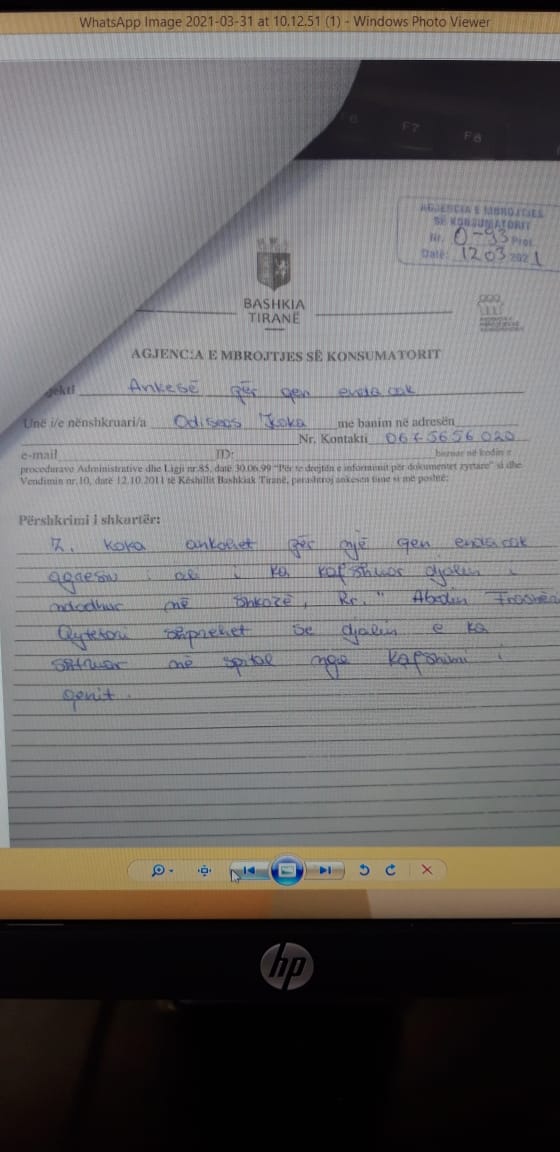 WhatsApp Image 2021-03-31 at 10.12.51 (1) - Windows Photo Viewer
F6
F7
F8
AGJENCIA E MBROJTJES
SË KONSUMATORIT
Nr. 0-93 Prot.
Datë: 12 03 2021
BASHKIA
TIRANË
AGJENCIA E MBROJTJES SË KONSUMATORIT
Ankesë për qen endacak
Unë i/e nënshkruari/a Odiseas Koka me banim në adresën
Nr. Kontakti 0675656020
e-mail ID: bazuar në kodin e
procedurave Administrative dhe Ligji nr.85, datë 30.06.99 "Për të drejtën e informimit për dokumentet zyrtare" si dhe
Vendimin nr.10, datë 12.10.2011 të Këshillit Bashkiak Tiranë, parashtroj ankesën time si më poshtë:
Përshkrimi i shkurtër:
Z. Koka ankohet për një qen endacak
agresiv i cili i ka kafshuar djalin i
ndodhur në Shkozë, Rr. " Abedin
Qytetari shprehet se djalin e ka
shtruar në spital nga kafshimi i
qenit.
hp